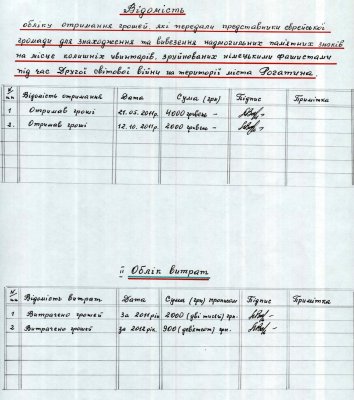 Відомість
обліку отримання грошей, які передали представники єврейської
громади для знаходження та вивезення надмогильних пам'ятних знаків
на місце колишніх цвинтарів, зруйнованих німецькими фашистами
під час Другої світової війни на території міста Рогатина.
Відомість отримання Дата Сума (грн) Підпис Примітка
1 Отримав гроші 21.05.2011р. 4000 гривень -
2. Отримав гроші 12.10.2011р. 2000 гривень -
ІІ Облік витрат
Відомість витрат Дата Сума (грн) прописом Підпис Примітка
1 Витрачено грошей За 2011 рік 2000 (дві тисячі) грн.
2 Витрачено грошей За 2012 рік 900 (дев'ятсот) грн.